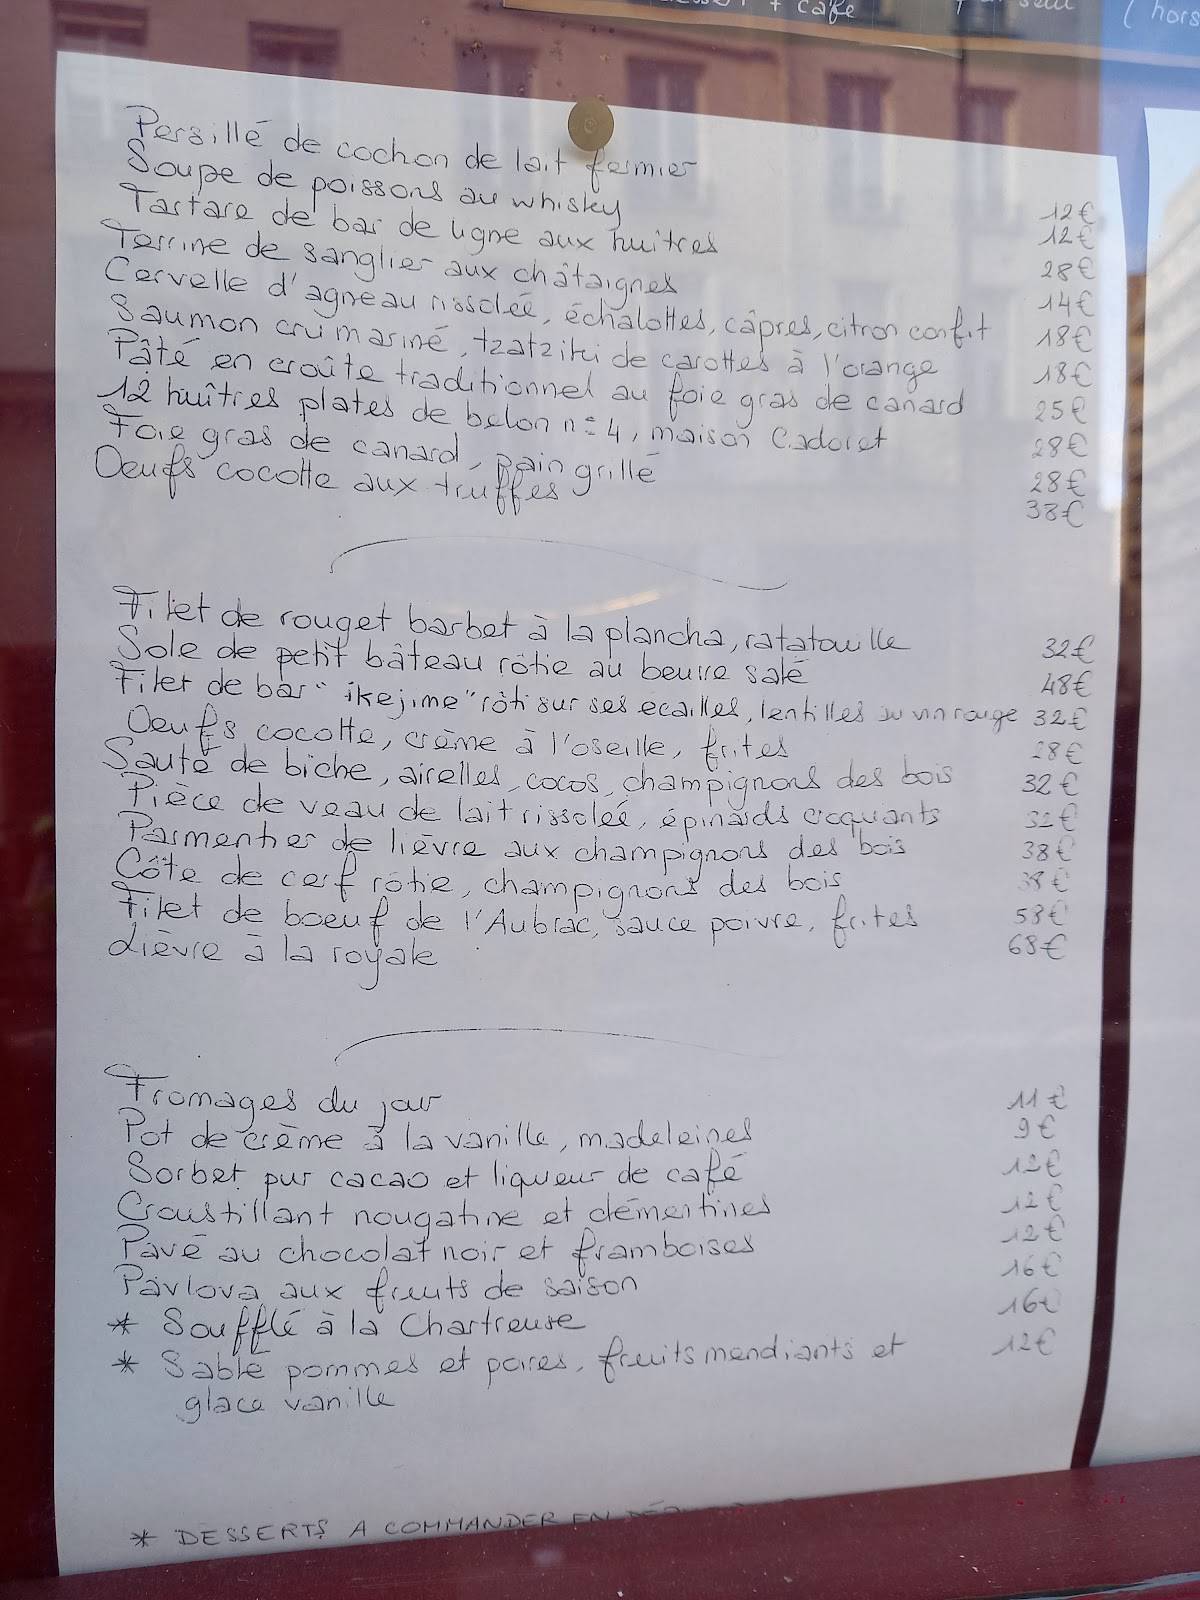 + café
(hors
Persillé de cochon de lait fermier 12€
Soupe de poissons au whisky 12€
Tartare de bar de ligne aux huîtres 28€
Terrine de sanglier aux châtaignes 14€
Cervelle d'agneau rissolée, échalottes, câpres, citron confit 18€
Saumon cru mariné, tzatziki de carottes à l'orange 18€
Pâté en croûte traditionnel au foie gras de canard 25€
12 huîtres plates de belon n=4, maison Cadoret 28€
Foie gras de canard, pain grillé 28€
Oeufs cocotte aux truffes 38€
Filet de rouget barbet à la plancha, ratatouille 32€
Sole de petit bâteau rôtie au beurre salé 48€
Filet de bar "ikejime" rôti sur ses ecailles, lentilles au vin rouge 32€
Oeufs cocotte, crème à l'oseille, frites 28€
Sauté de biche, airelles, cocos, champignons des bois 32€
Pièce de veau de lait rissolée, épinards croquants 32€
Parmentier de lièvre aux champignons des bois 38€
Côte de cerf rôtie, champignons des bois 38€
Filet de boeuf de l'Aubrac, sauce poivre, frites 58€
Lièvre à la royale 68€
Fromages du jour 11€
Pot de crème à la vanille, madeleines 9€
Sorbet pur cacao et liqueur de café 12€
Croustillant nougatine et clémentines 12€
Pavé au chocolat noir et framboises 12€
Pavlova aux fruits de saison 16€
* Soufflé à la Chartreuse 16€
* Sablé pommes et poires, fruits mendiants et 12€
glace vanille
* DESSERTS A COMMANDER EN